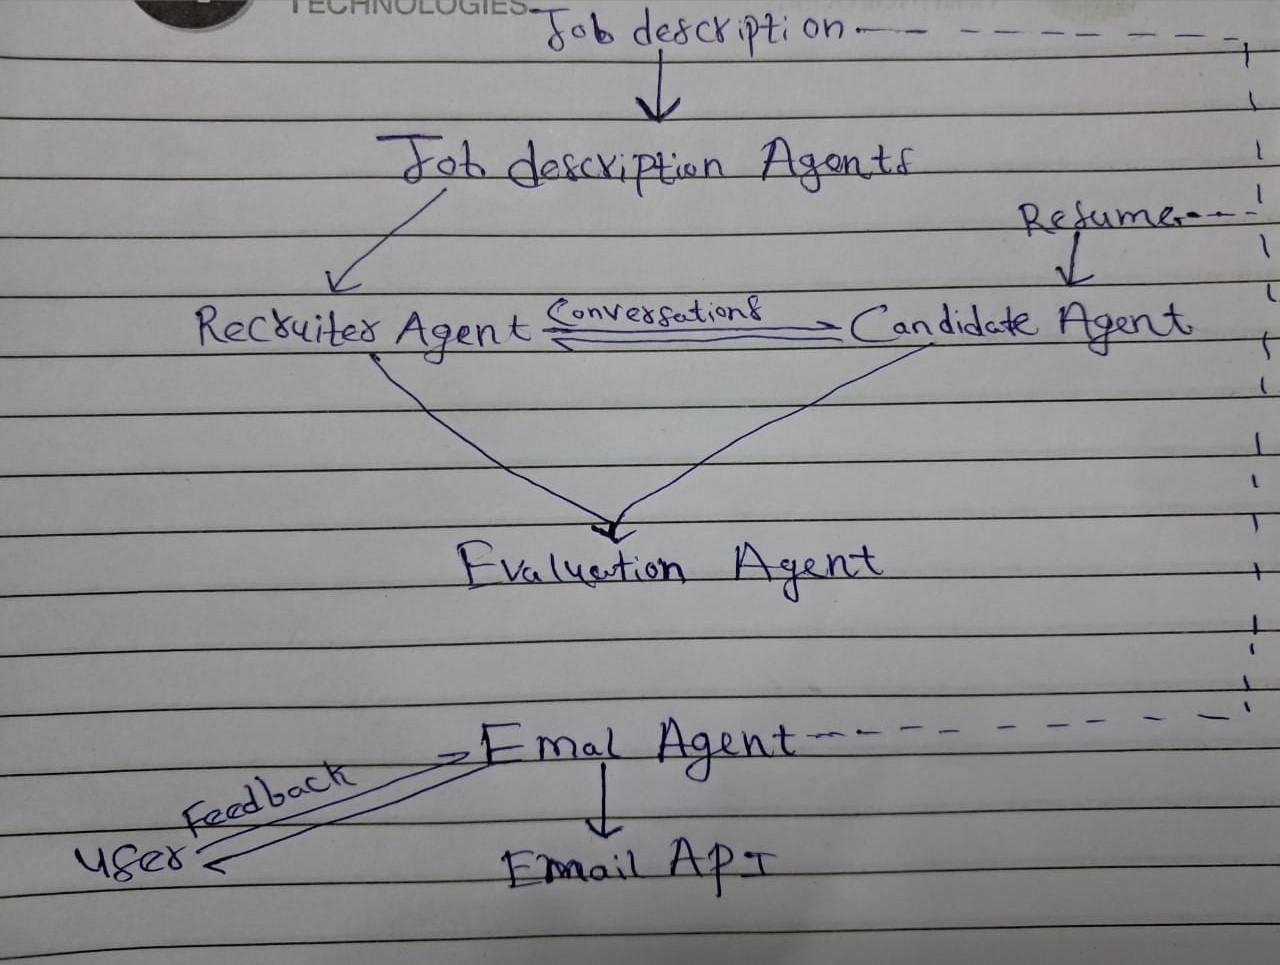 TECHNOLOGIES
Job description
Job description Agents
Resume
Conversations
Recruiter Agent
Candidate Agent
Evaluation Agent
Emal Agent
Feedback
user
Email API